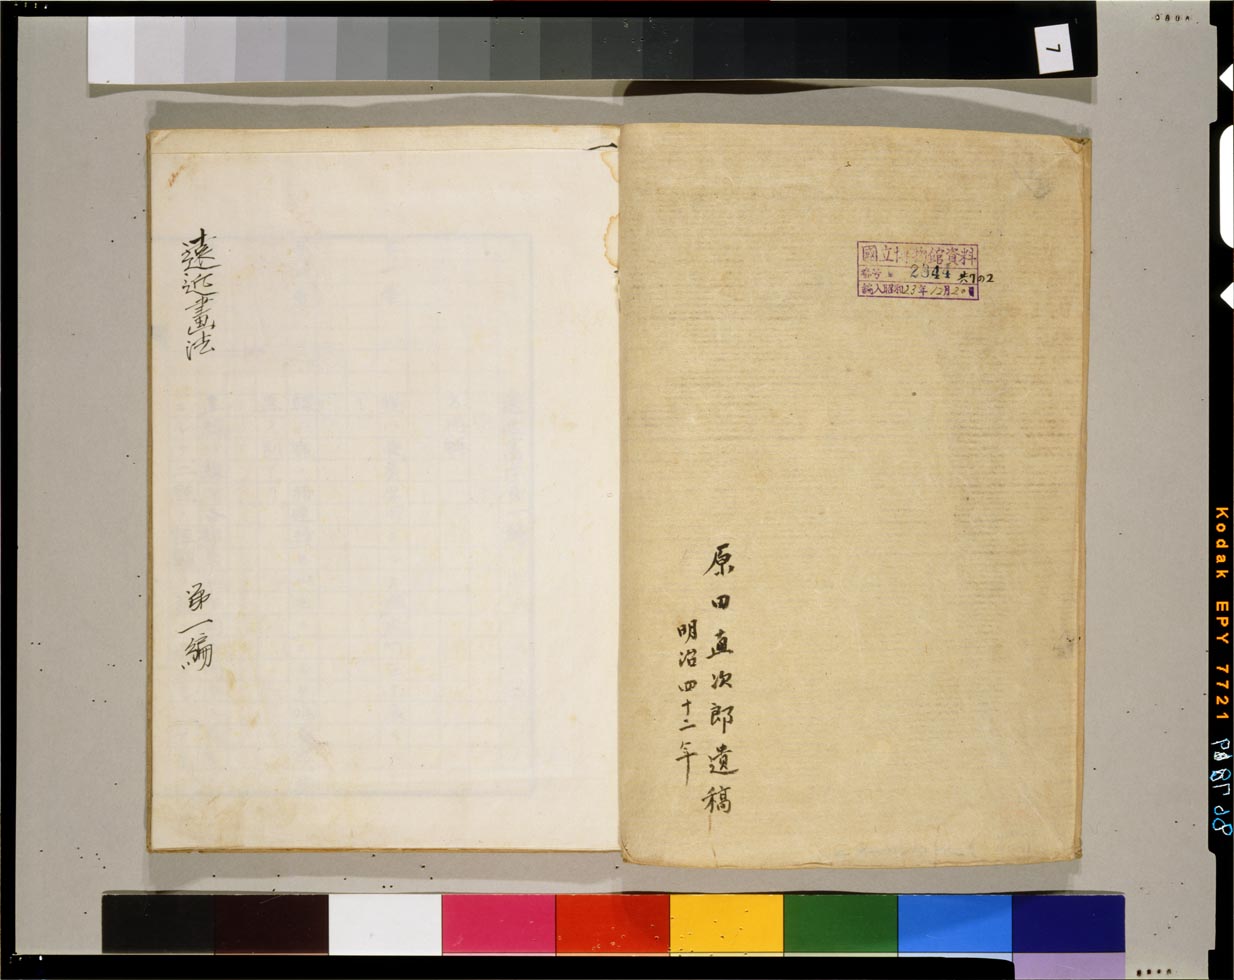 7
國立博物館資料
番号 2344 共7の2
購入昭和23年12月20日
原田直次郎遺稿
明治四十二年
遠近畫法 第一編
Kodak EPY 7721